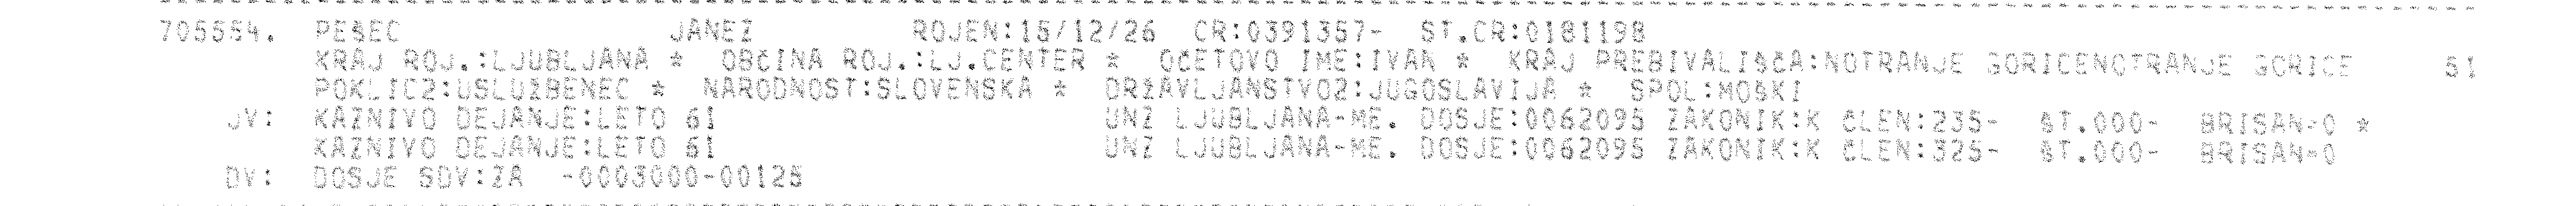 705554. PEŠEC JANEZ ROJEN:15/12/26 CR:0391357- ST.CR:0181198
KRAJ ROJ.:LJUBLJANA * OBČINA ROJ.:LJ.CENTER * OČETOVO IME:IVAN * KRAJ PREBIVALIŠČA:NOTRANJE GORICENOTRANJE GORICE 51
POKLIC2:USLUŽBENEC * NARODNOST:SLOVENSKA * DRŽAVLJANSTVO2:JUGOSLAVIJA * SPOL:MOŠKI
JV: KAZNIVO DEJANJE:LETO 61 UNZ LJUBLJANA-ME. DOSJE:0062095 ZAKONIK:K ČLEN:235- ŠT.000- BRISAN=0 *
KAZNIVO DEJANJE:LETO 61 UNZ LJUBLJANA-ME. DOSJE:0062095 ZAKONIK:K ČLEN:325- ŠT.000- BRISAN=0
DV: DOSJE SDV:ZA -0003000-00125